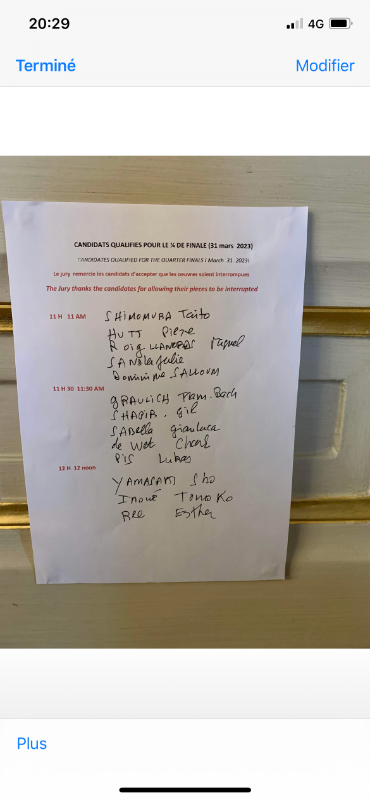 20:29
4G
Terminé
Modifier
CANDIDATS QUALIFIES POUR LE ¼ DE FINALE (31 mars 2023)
(CANDIDATES QUALIFIED FOR THE QUARTER FINALS ( March 31. 2023)
Le jury remercie les candidats d'accepter que les oeuvres soient interrompues
The Jury thanks the candidates for allowing their pieces to be interrupted
11 H 11 AM SHIMOMURA Taito
HUTT Pierre
Roig LLANERAS Miquel
SANOLA Julie
Dominique SALLOUM
11 H 30 11:30 AM
GRAULICH
SHAGIR. Gil
SABella gianluca
de Wet Charl
Pis Lukas
12 H 12 noon
YAMASAKI Sho
Inoué Tomoko
Ree Esther
Plus